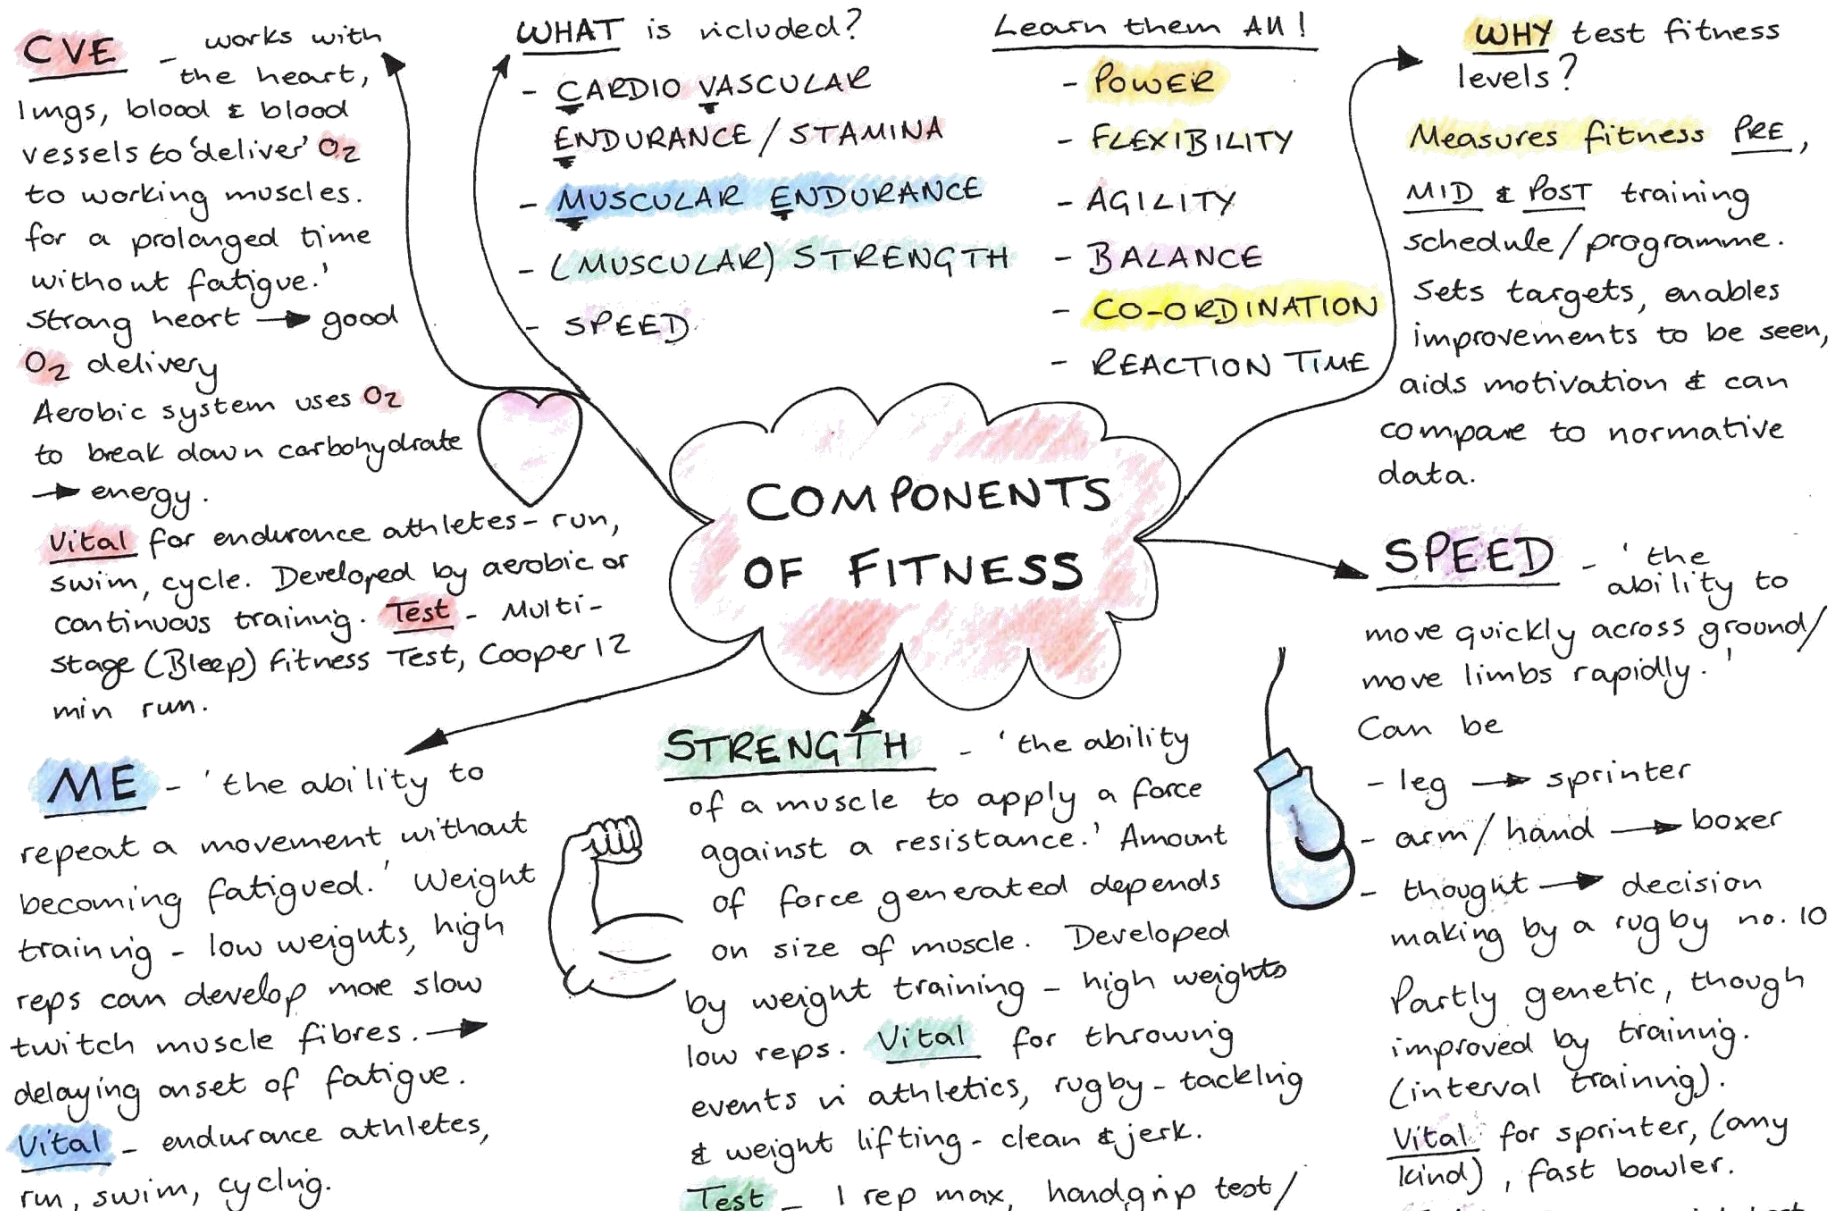 CVE - works with
the heart,
lungs, blood & blood
vessels to 'deliver' O2
to working muscles.
for a prolonged time
without fatigue.'
Strong heart → good
O2 delivery
Aerobic system uses O2
to break down carbohydrate
→ energy.
Vital for endurance athletes - run,
swim, cycle. Developed by aerobic or
continuous training. Test - Multi-
stage (Bleep) Fitness Test, Cooper 12
min run.
WHAT is included?
- CARDIO VASCULAR
ENDURANCE / STAMINA
- MUSCULAR ENDURANCE
- (MUSCULAR) STRENGTH
- SPEED
Learn them All!
- POWER
- FLEXIBILITY
- AGILITY
- BALANCE
- CO-ORDINATION
- REACTION TIME
WHY test fitness
levels?
Measures fitness PRE,
MID & POST training
schedule / programme.
Sets targets, enables
improvements to be seen,
aids motivation & can
compare to normative
data.
COMPONENTS
OF FITNESS
SPEED - 'the
ability to
move quickly across ground/
move limbs rapidly.'
Can be
- leg → sprinter
- arm / hand → boxer
- thought → decision
making by a rugby no. 10
Partly genetic, though
improved by training.
(interval training).
Vital for sprinter, (any
kind), fast bowler.
ME - 'the ability to
repeat a movement without
becoming fatigued.' Weight
training - low weights, high
reps can develop more slow
twitch muscle fibres. →
delaying onset of fatigue.
Vital - endurance athletes,
run, swim, cycling.
STRENGTH - 'the ability
of a muscle to apply a force
against a resistance.' Amount
of force generated depends
on size of muscle. Developed
by weight training - high weights
low reps. Vital for throwing
events in athletics, rugby - tackling
& weight lifting - clean & jerk.
Test - 1 rep max, handgrip test /